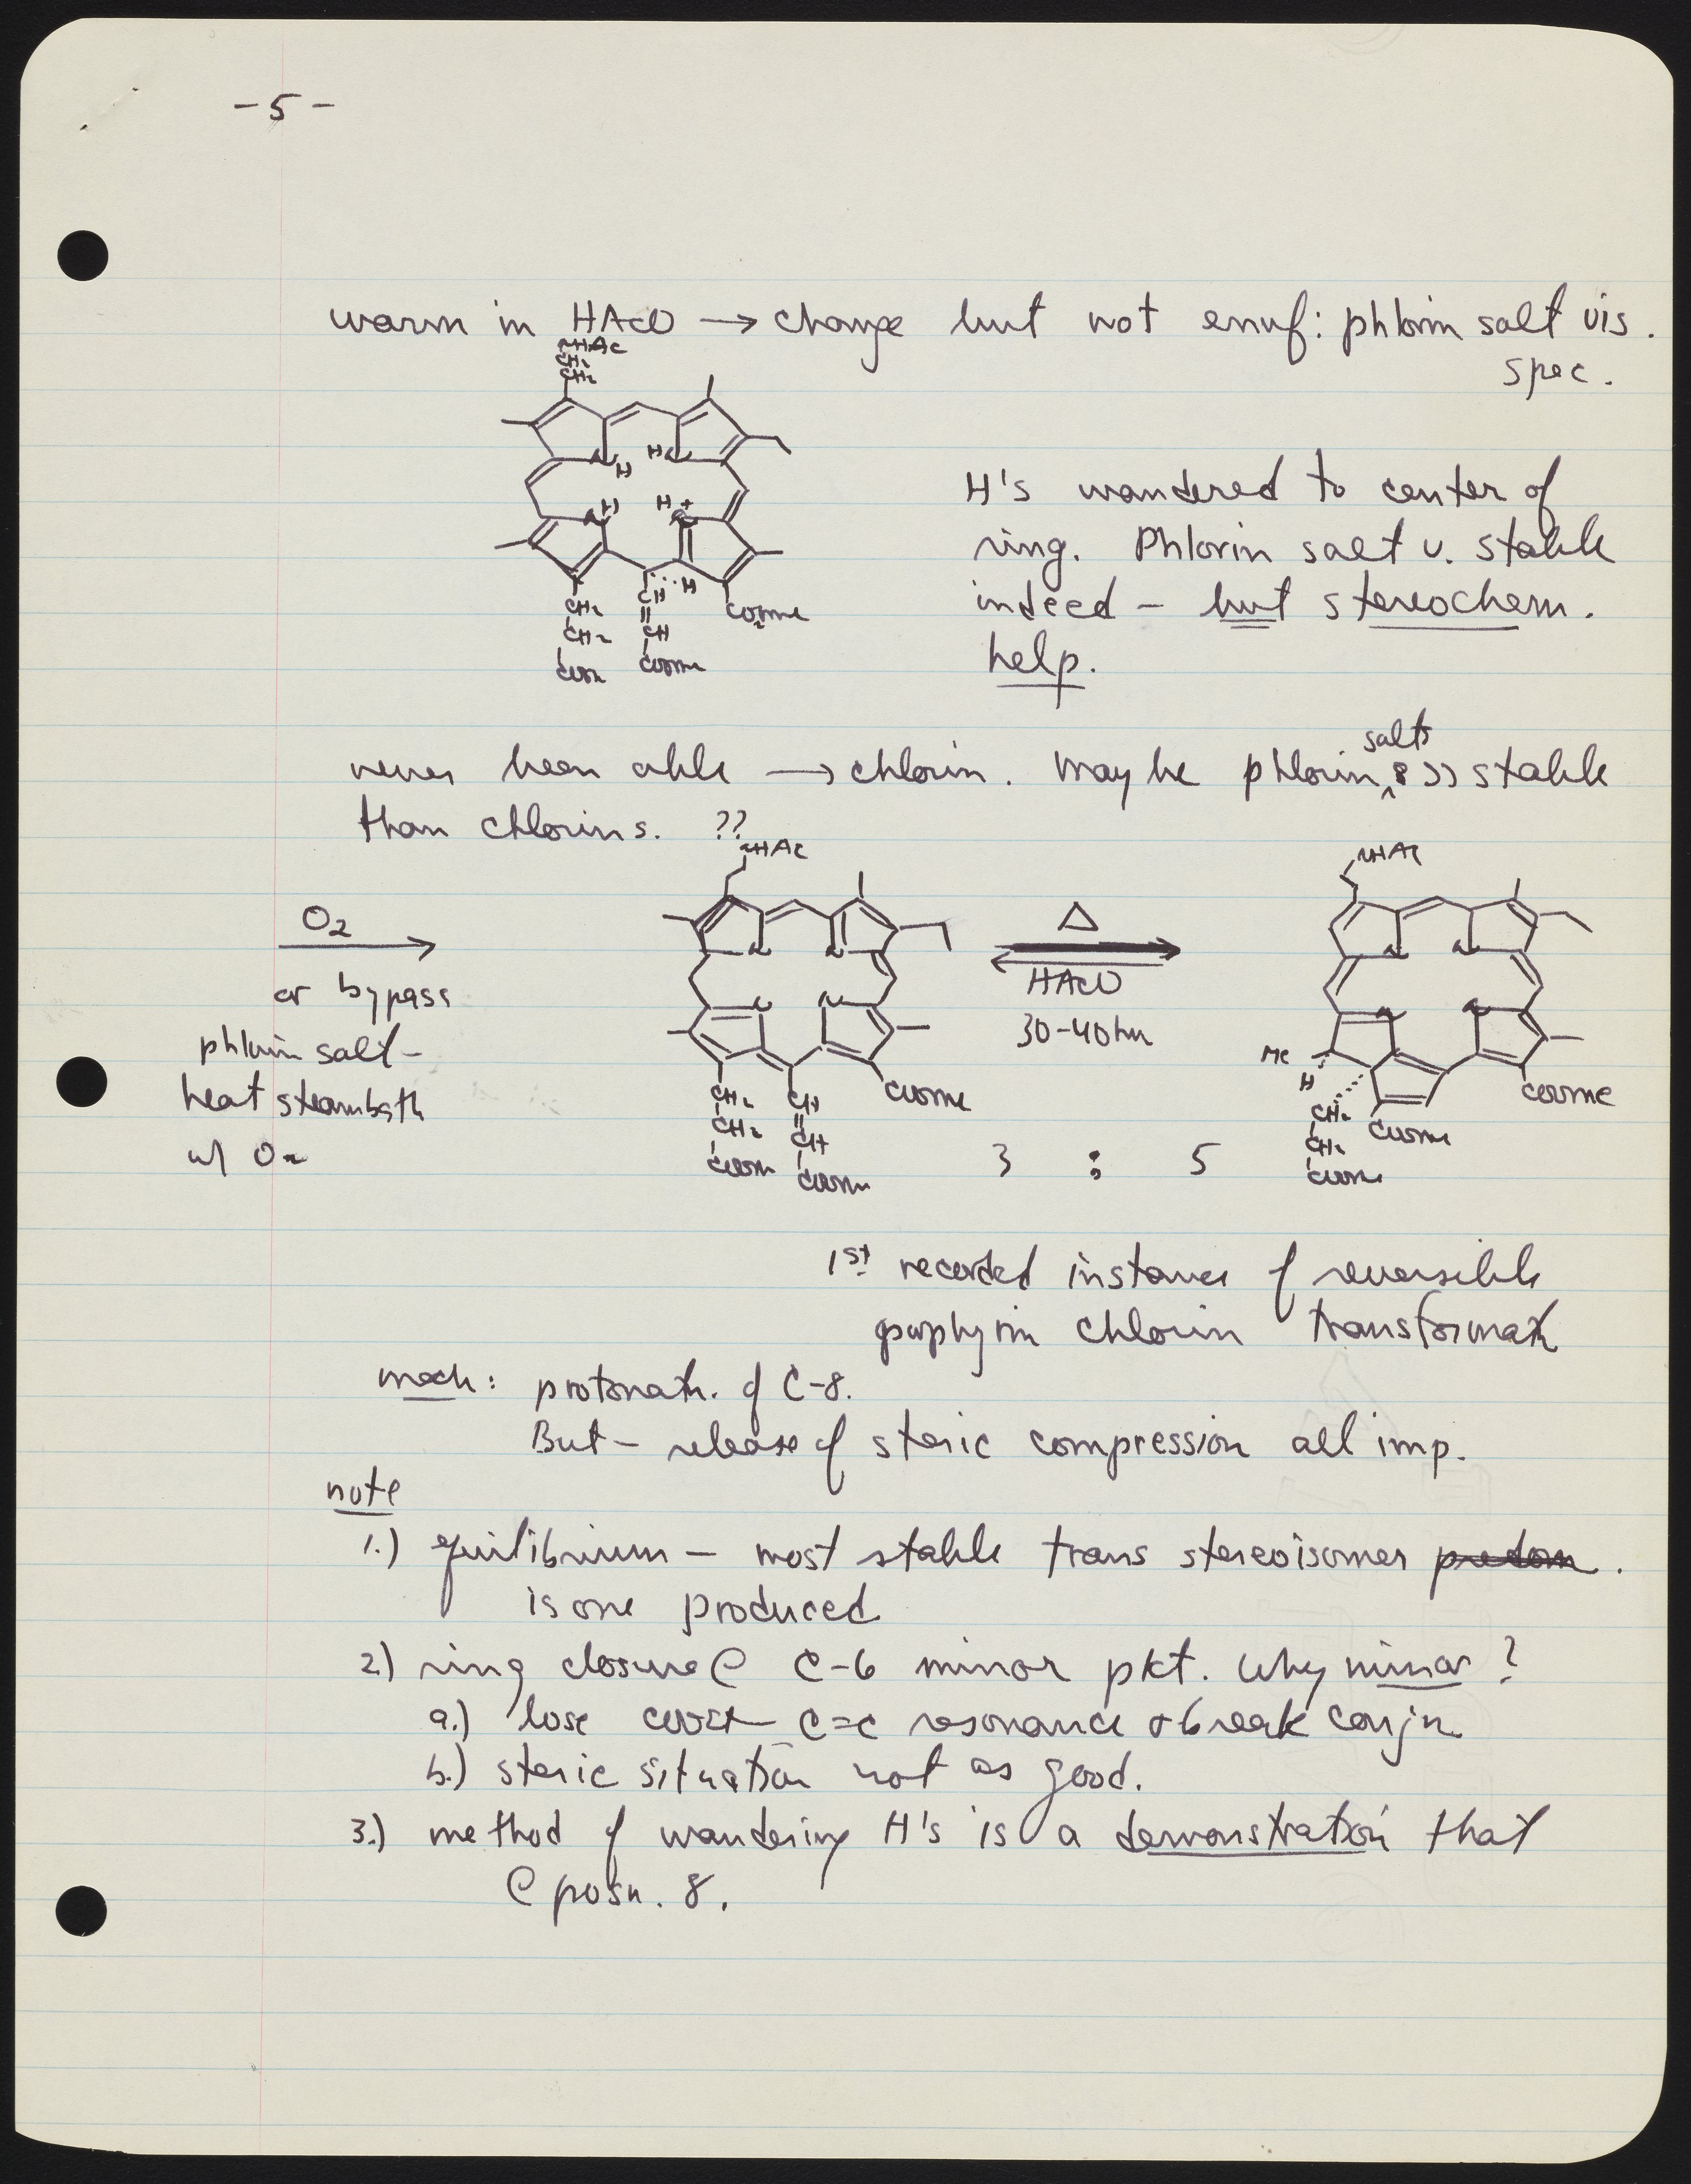 -5-
warm in HAcO → change but not enuf: phlorin salt vis.
spec.
NHAc
CH2
CH2
H
HN
H
H +
N
H
CH2
CH2
COOMe
CH
CH
COOMe
CO2Me
H's wandered to center of
ring. Phlorin salt v. stable
indeed – but stereochem.
help.
never been able → chlorin. Maybe phlorin salts >> stable
than chlorins. ??
O2
or bypass
phlorin salt –
heat steambath
w/ O2
NHAc
N
N
N
N
CH2
CH2
COOMe
CH
CH
COOMe
COOMe
Δ
HAcO
30-40hm
3 : 5
NHAc
N
N
N
N
Me
H
CH2
CH2
COOMe
COOMe
COOMe
1st recorded instance of reversible
porphyrin chlorin transformatn
mech: protonatn. of C-8.
But – release of steric compression all imp.
note
1.) equilibrium – most stable trans stereoisomer predom.
is one produced
2.) ring closure @ C-6 minor pkt. Why minor?
a.) lose COOR C=C resonance + break conjn
b.) steric situation not as good.
3.) method of wandering H's is a demonstration that
@ posn. 8.